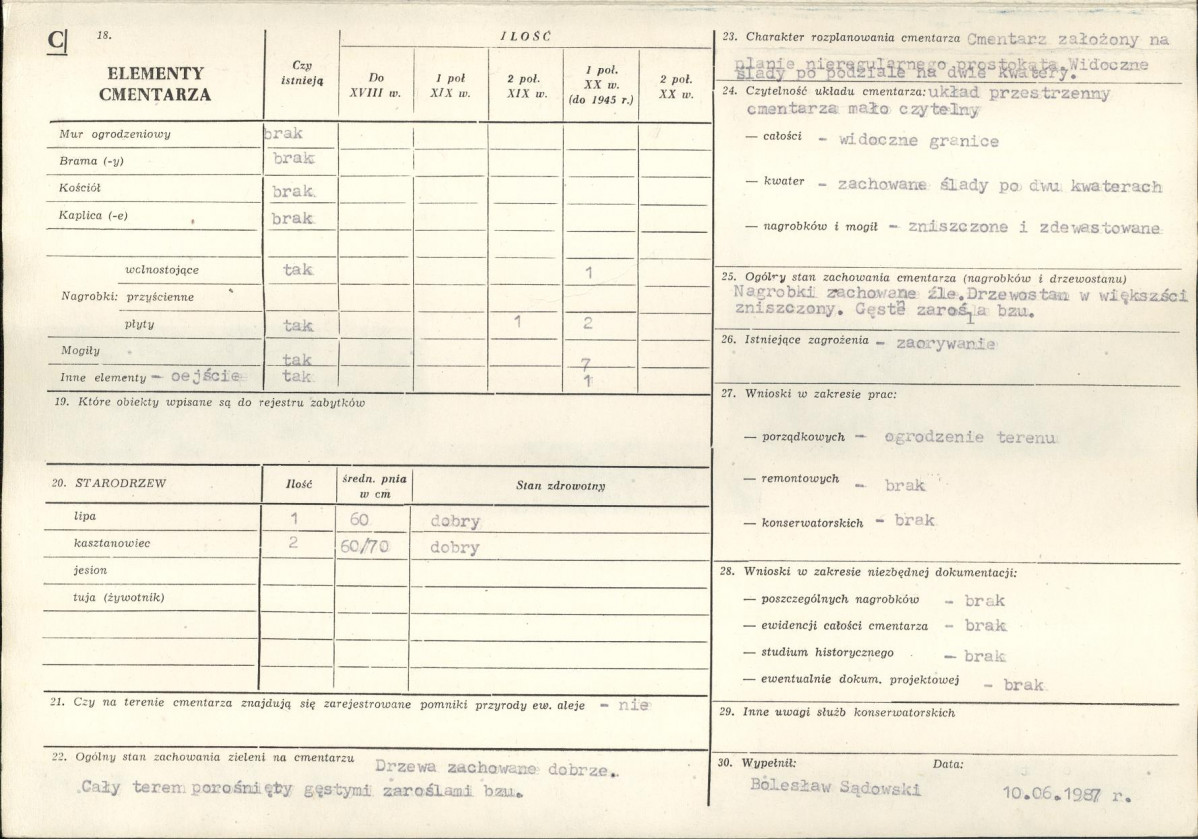 C 18.
ELEMENTY
CMENTARZA
Czy
istnieją
ILOŚĆ
Do
XVIII w.
1 poł
XIX w.
2 poł.
XIX w.
1 poł.
XX w.
(do 1945 r.)
2 poł.
XX w.
Mur ogrodzeniowy brak
Brama (-y) brak
Kościół brak
Kaplica (-e) brak
wolnostojące tak 1
Nagrobki: przyścienne
płyty tak 1 2
Mogiły tak 7
Inne elementy - oejście tak 1
19. Które obiekty wpisane są do rejestru zabytków
20. STARODRZEW Ilość średn. pnia
w cm Stan zdrowotny
lipa 1 60 dobry
kasztanowiec 2 60/70 dobry
jesion
tuja (żywotnik)
21. Czy na terenie cmentarza znajdują się zarejestrowane pomniki przyrody ew. aleje - nie
22. Ogólny stan zachowania zieleni na cmentarzu Drzewa zachowane dobrze.
Cały teren porośnięty gęstymi zaroślami bzu.
23. Charakter rozplanowania cmentarza Cmentarz założony na
planie nieregularnego prostokąta. Widoczne
ślady po podziale na dwie kwatery.
24. Czytelność układu cmentarza: układ przestrzenny
cmentarza mało czytelny
— całości - widoczne granice
— kwater - zachowane ślady po dwu kwaterach
— nagrobków i mogił - zniszczone i zdewastowane
25. Ogólny stan zachowania cmentarza (nagrobków i drzewostanu)
Nagrobki zachowane źle. Drzewostan w większści
zniszczony. Gęste zarośla bzu.
26. Istniejące zagrożenia - zaorywanie
27. Wnioski w zakresie prac:
— porządkowych - ogrodzenie terenu
— remontowych - brak
— konserwatorskich - brak
28. Wnioski w zakresie niezbędnej dokumentacji:
— poszczególnych nagrobków - brak
— ewidencji całości cmentarza - brak
— studium historycznego - brak
— ewentualnie dokum. projektowej - brak
29. Inne uwagi służb konserwatorskich
30. Wypełnił: Data:
Bolesław Sądowski 10.06.1987 r.